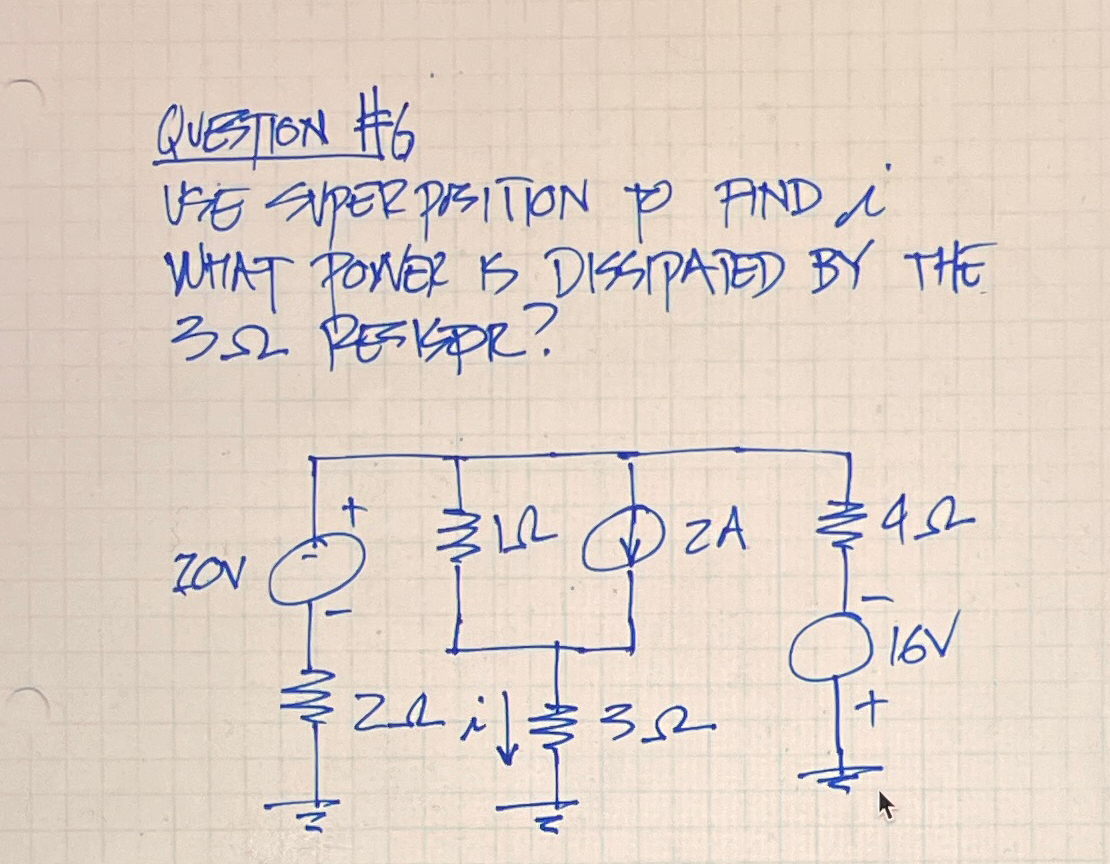 QUESTION #6
USE SUPERPOSITION TO FIND i
WHAT POWER IS DISSIPATED BY THE
3Ω RESISTOR?
+
20V
-
1Ω
2A
4Ω
-
16V
+
2Ω
i
3Ω